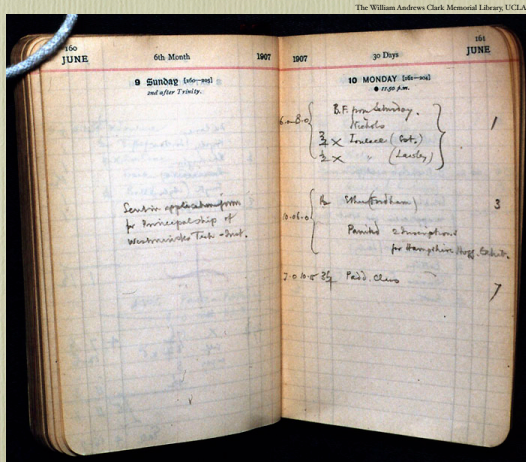 The William Andrews Clark Memorial Library, UCLA
160
JUNE
6th Month
1907
9 Sunday [160—205]
2nd after Trinity.
Sent in application form
for Principalship of
Westminster Tech. Inst.
1907
30 Days
161
JUNE
10 MONDAY [161—204]
● 11.50 p.m.
B.F. from Saturday.
Nichols
(Sat.)
1
½ ×
3
Painted 2 inscriptions
for Hampshire
Padd. Class
7